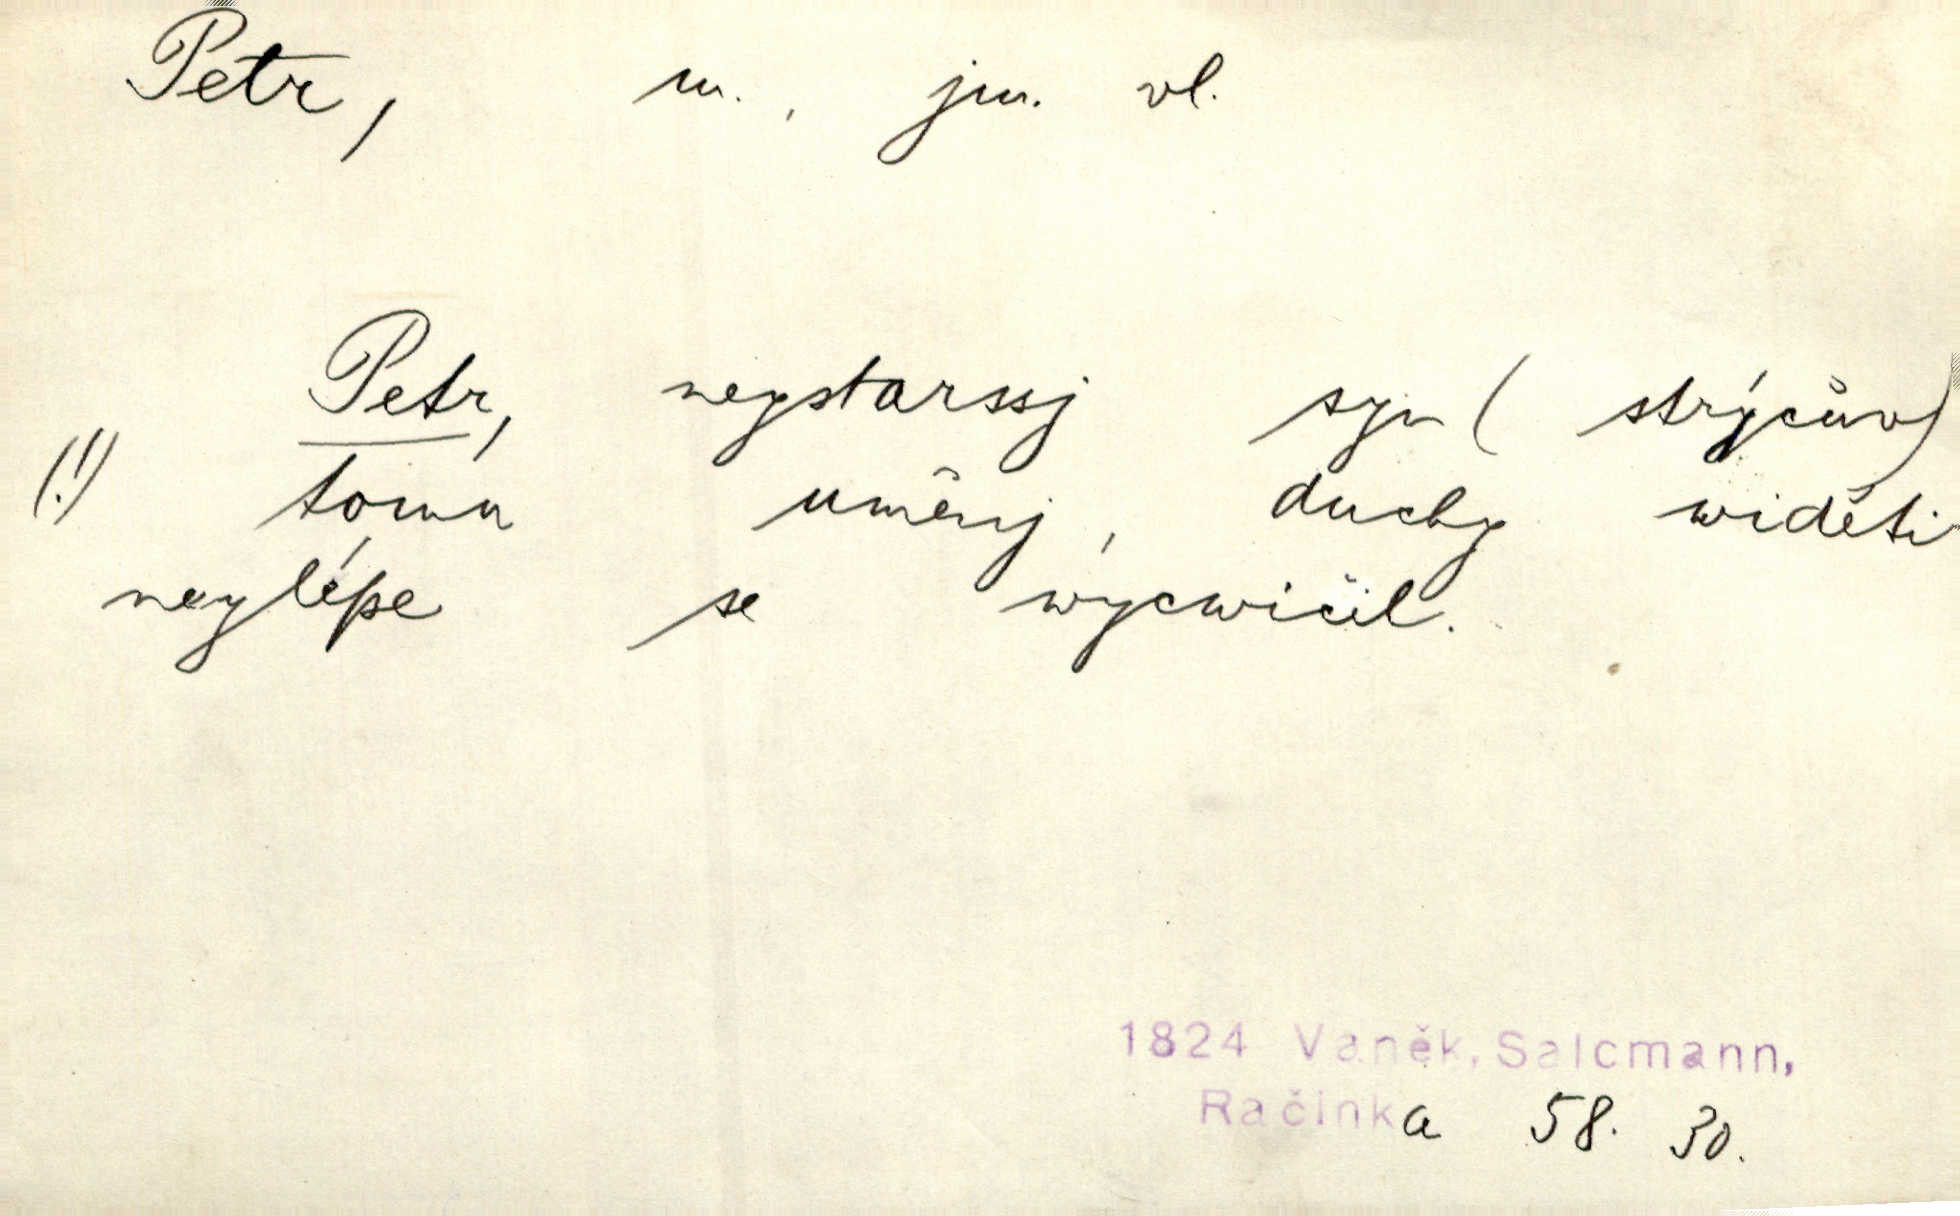 Petr, m., jm. vl.
Petr, neystarssj syn (strýcůw)
(!) tomu uměnj, duchy widěti
neylépe se wycwičil.
1824 Vaněk, Salcmann,
Račinka 58. 30.